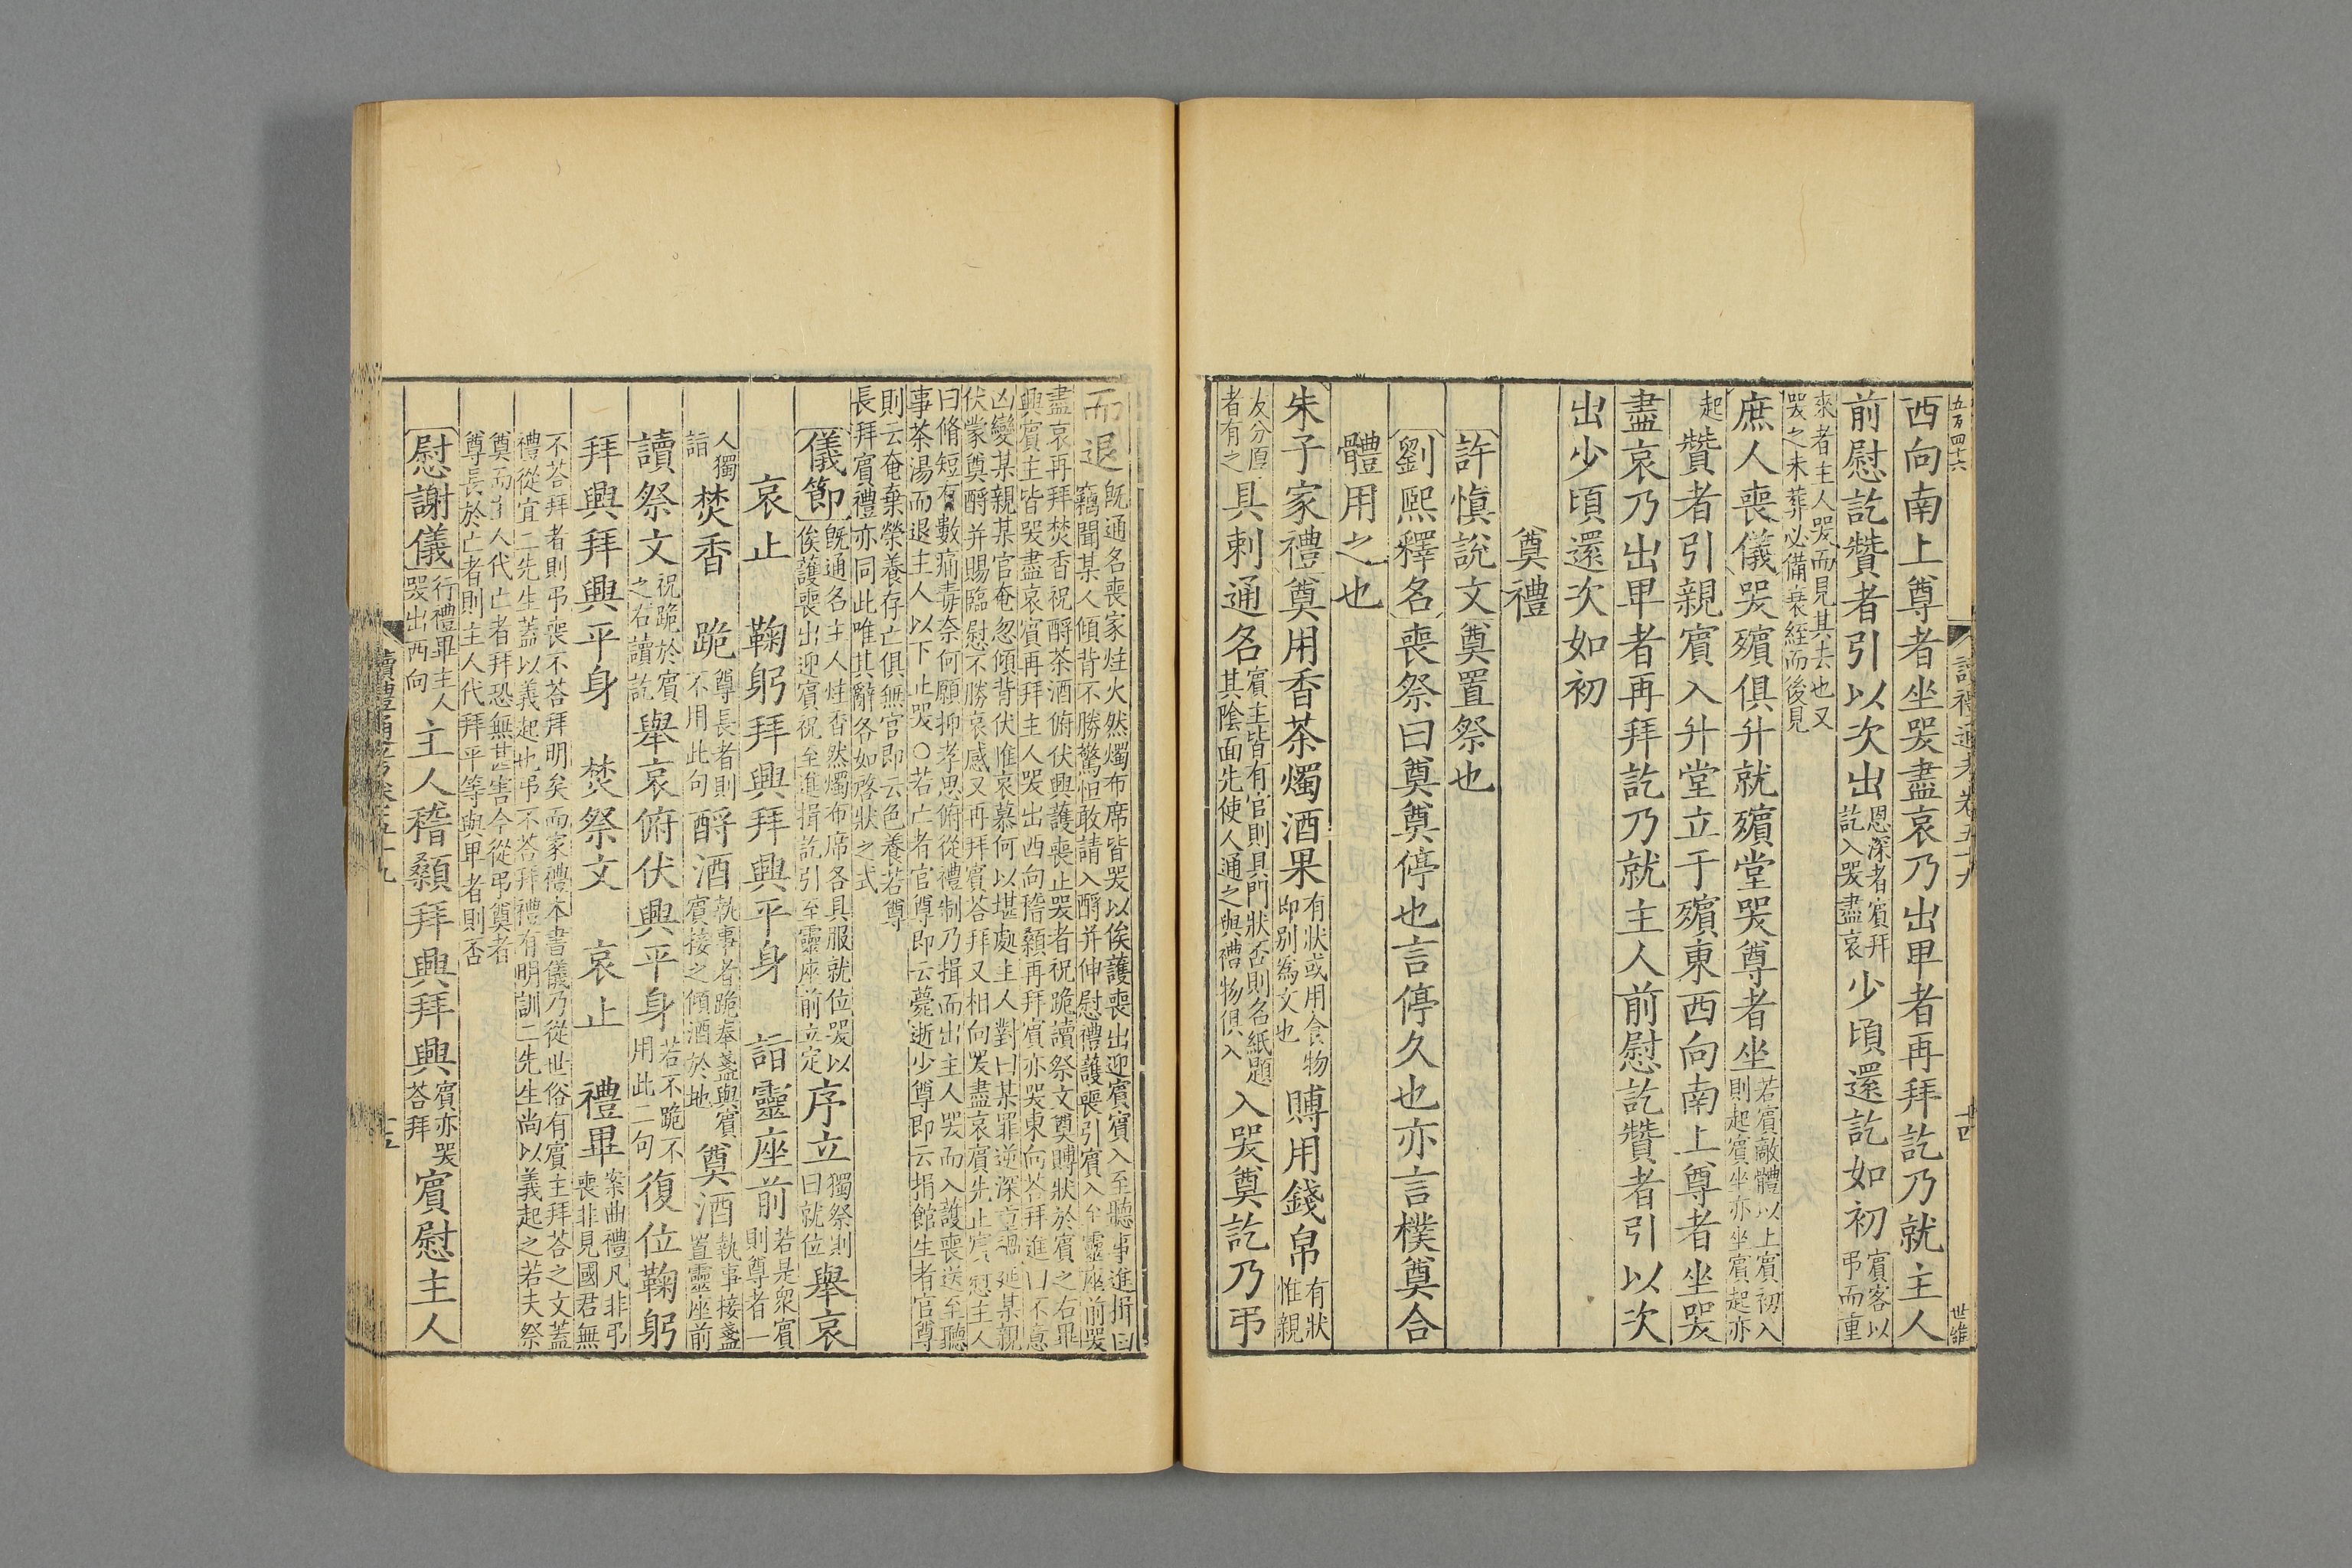 五百四十六
讀禮通考卷五十九
十四
世維
西向南上尊者坐哭盡哀乃出卑者再拜訖乃就主人
前慰訖贊者引以次出恩深者賓拜訖入哭盡哀少頃還訖如初賓客以弔而重
來者主人哭而見其去也又哭之未葬必備衰絰而後見
庶人喪儀哭殯俱升就殯堂哭尊者坐若賓敵體以上賓初入則起賓坐亦坐賓起亦
起贊者引親賓入升堂立于殯東西向南上尊者坐哭
盡哀乃出卑者再拜訖乃就主人前慰訖贊者引以次
出少頃還次如初
奠禮
許慎說文奠置祭也
劉熙釋名喪祭曰奠奠停也言停久也亦言樸奠合
體用之也
朱子家禮奠用香茶燭酒果有狀或用食物即別為文也賻用錢帛有狀惟親
友分厚者有之具刺通名賓主皆有官則具門狀否則名紙題其陰面先使人通之與禮物俱入入哭奠訖乃弔
而退既通名喪家炷火然燭布席皆哭以俟護喪出迎賓賓入至聽事進揖曰
竊聞某人傾背不勝驚怛敢請入酹并伸慰禮護喪引賓入至靈座前哭
盡哀再拜焚香祝酹茶酒俯伏興護喪止哭者祝跪讀祭文奠賻狀於賓之右畢
興賓主皆哭盡哀賓再拜主人哭出西向稽顙再拜賓亦哭東向荅拜進曰不意
凶變某親某官奄忽傾背伏惟哀慕何以堪處主人對曰某罪逆深重禍延某親
伏蒙奠酹并賜臨慰不勝哀感又再拜賓荅拜又相向哭盡哀賓先止寬慰主人
曰脩短有數痛毒奈何願抑孝思俯從禮制乃揖而出主人哭而入護喪送至聽
事茶湯而退主人以下止哭○若亡者官尊即云薨逝少尊即云捐館生者官尊
則云奄棄榮養存亡俱無官即云色養若尊
長拜賓禮亦同此唯其辭各如啓狀之式
儀節既通名主人炷香然燭布席各具服就位哭以俟護喪出迎賓祝至進揖訖引至靈座前立定序立獨祭則曰就位舉哀
哀止　鞠躬拜興拜興平身　詣靈座前若是衆賓則尊者一
人獨詣焚香　跪尊長者則不用此句酹酒執事者跪奉盞與賓賓接之傾酒於地奠酒執事接盞置靈座前
讀祭文祝跪於賓之右讀訖舉哀俯伏興平身若不跪不用此二句復位鞠躬
拜興拜興平身　焚祭文　哀止　禮畢案曲禮凡非弔喪非見國君無
不荅拜者則弔喪不荅拜明矣而家禮本書儀乃從世俗有賓主拜荅之文蓋
禮從宜二先生蓋以義起也弔不荅拜禮有明訓二先生尚以義起之若夫祭
奠而主人代亡者拜恐無甚害今從弔奠者
尊長於亡者則主人代拜平等與卑者則否
慰謝儀行禮畢主人哭出西向主人稽顙拜興拜興賓亦哭荅拜賓慰主人
讀禮通考卷五十九
十五